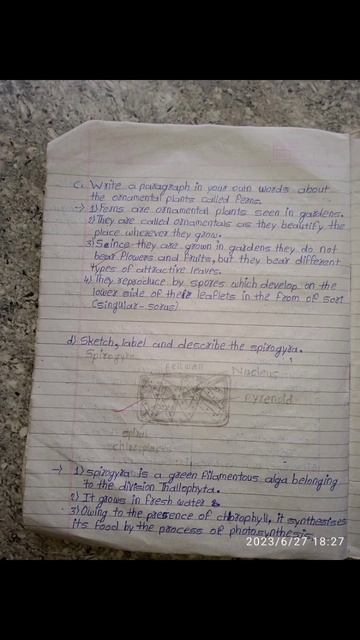 c. Write a paragraph in your own words about
the ornamental plants called Ferns.
→ 1) Ferns are ornamental plants seen in gardens.
2) They are called ornamentals as they beautify the
place wherever they grow.
3) Since they are grown in gardens they do not
bear flowers and fruits, but they bear different
types of attractive leaves.
4) They reproduce by spores which develop on the
lower side of their leaflets in the from of sori
(singular - sorus)
d) Sketch, label and describe the spirogyra.
Spirogyra
cell wall
Nucleus
pyrenoid
spiral
chloroplasts
→ 1) spirogyra is a green filamentous alga belonging
to the division Thallophyta.
2) It grows in fresh water
3) Owing to the presence of chlorophyll, it synthesises
its food by the process of photosynthesis.
2023/6/27 18:27